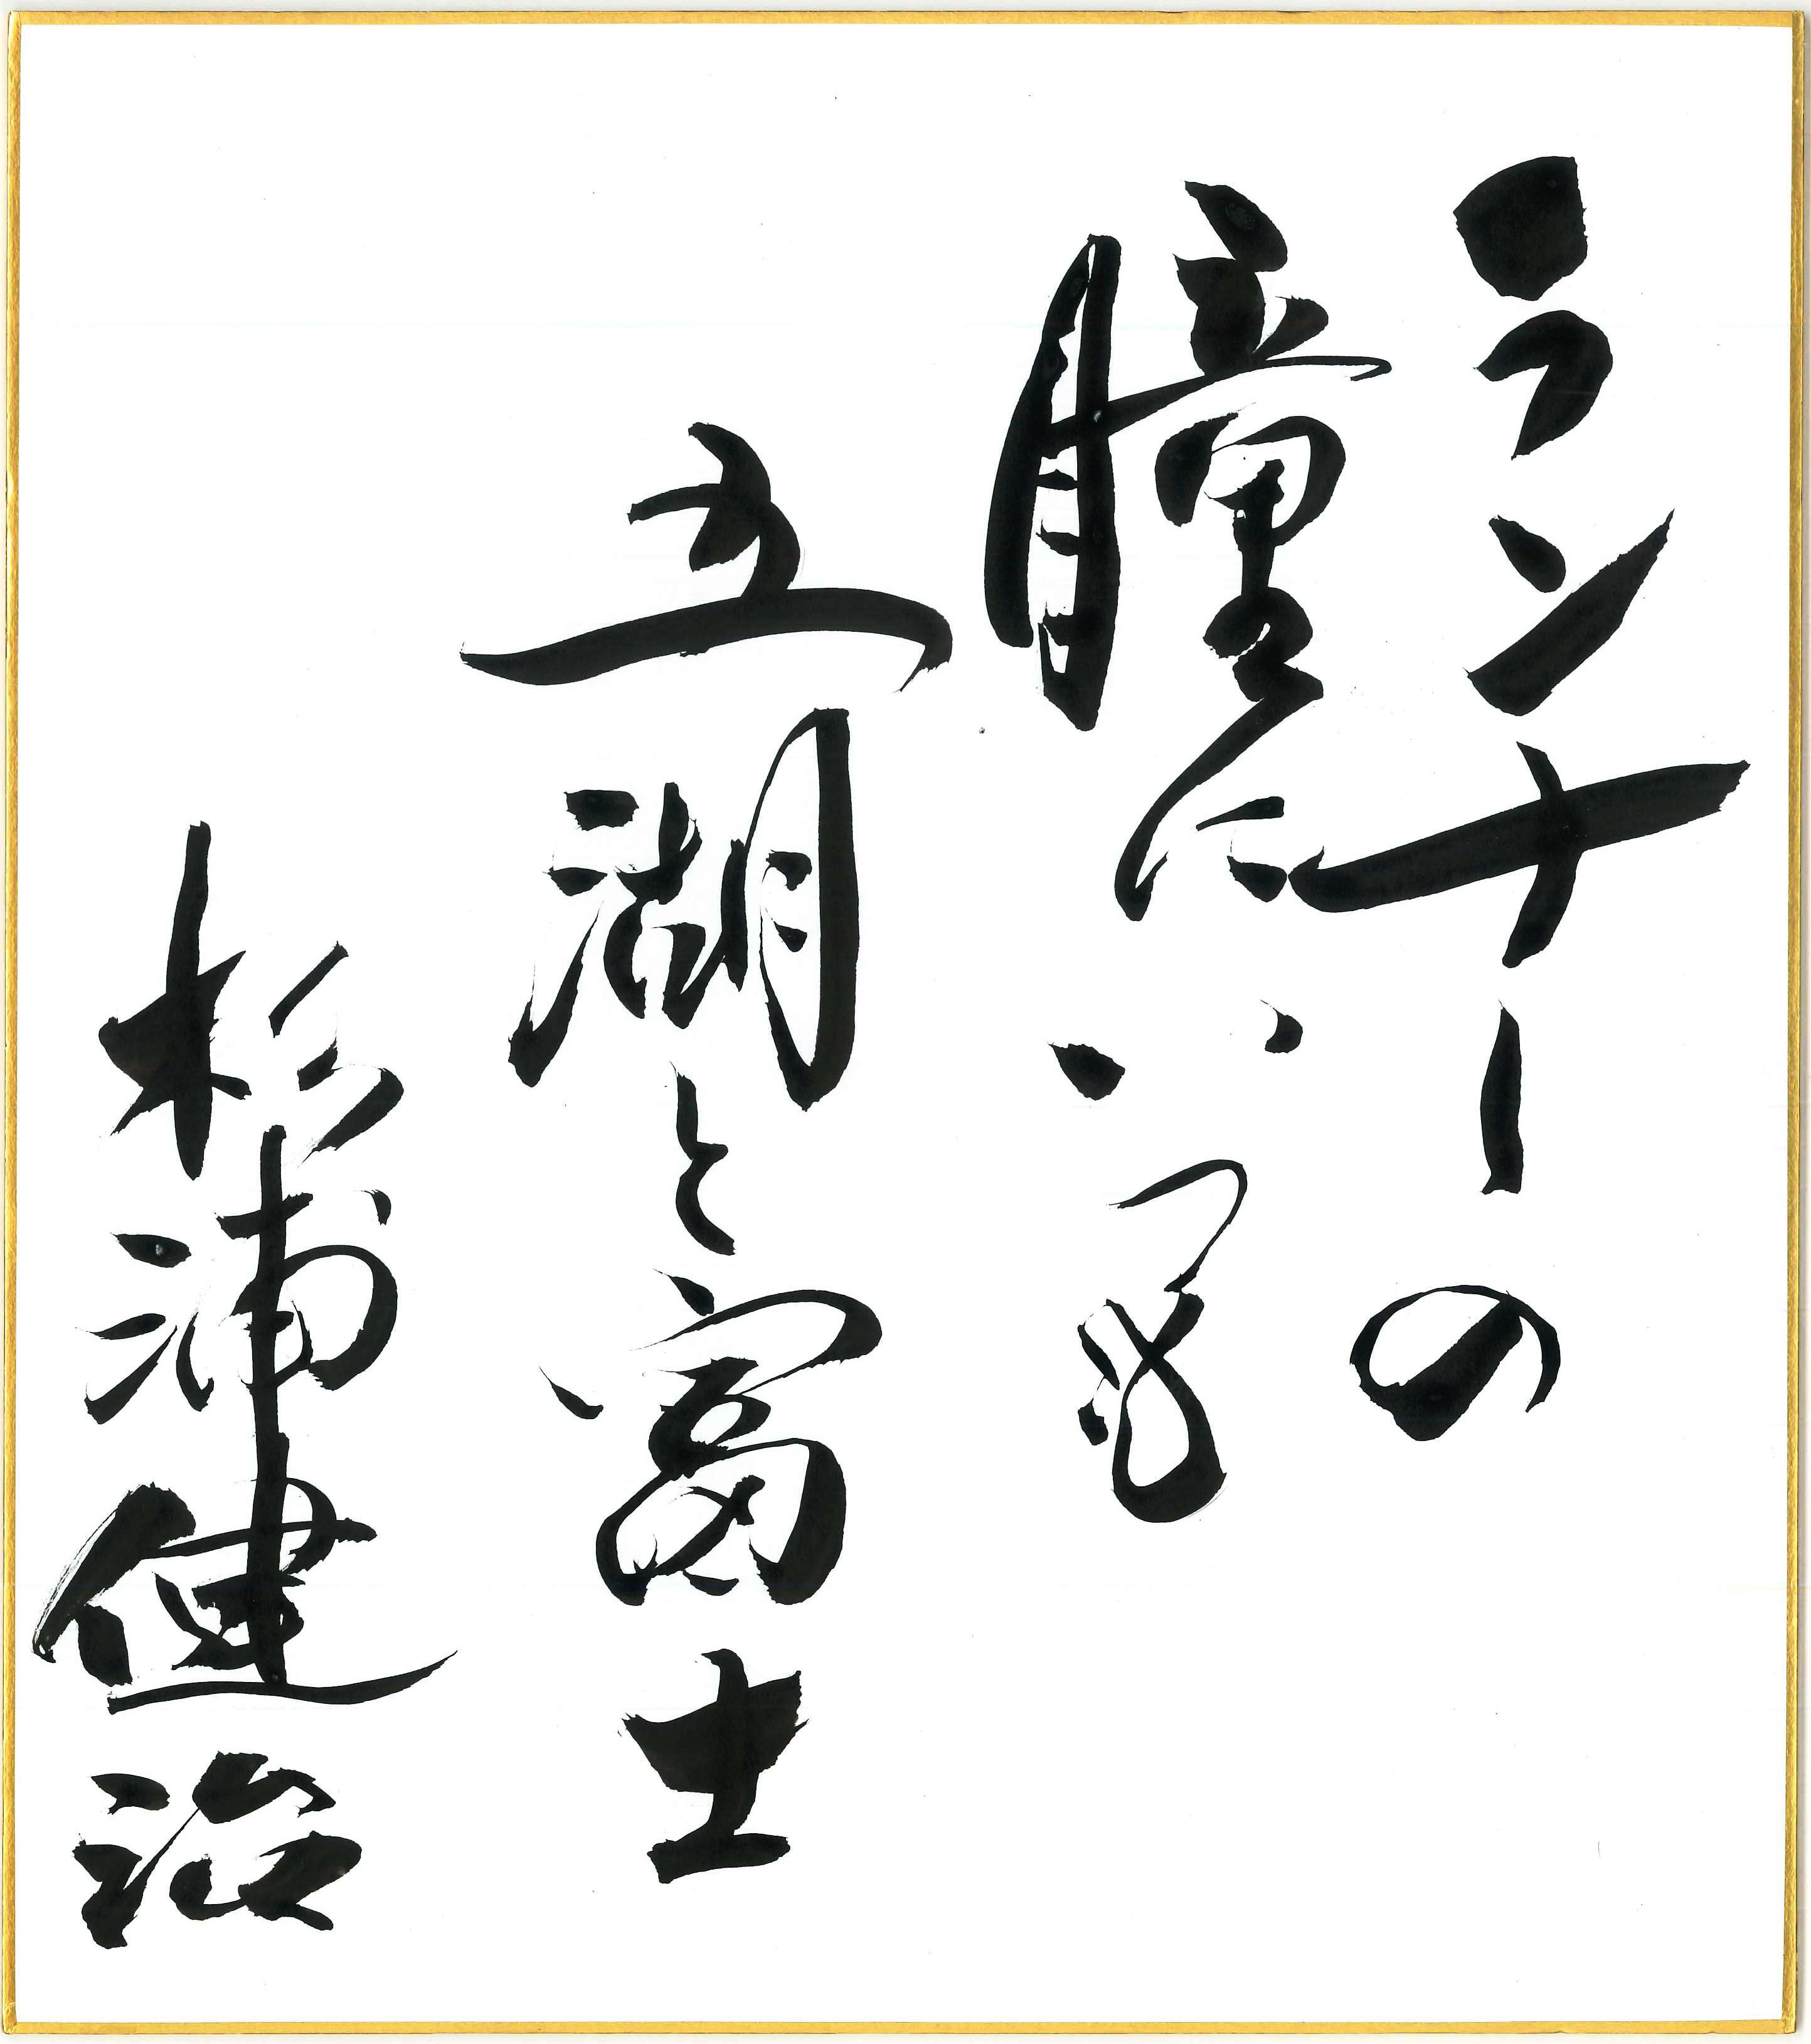 ランナーの
瞳に
五湖と富士
杉浦健治